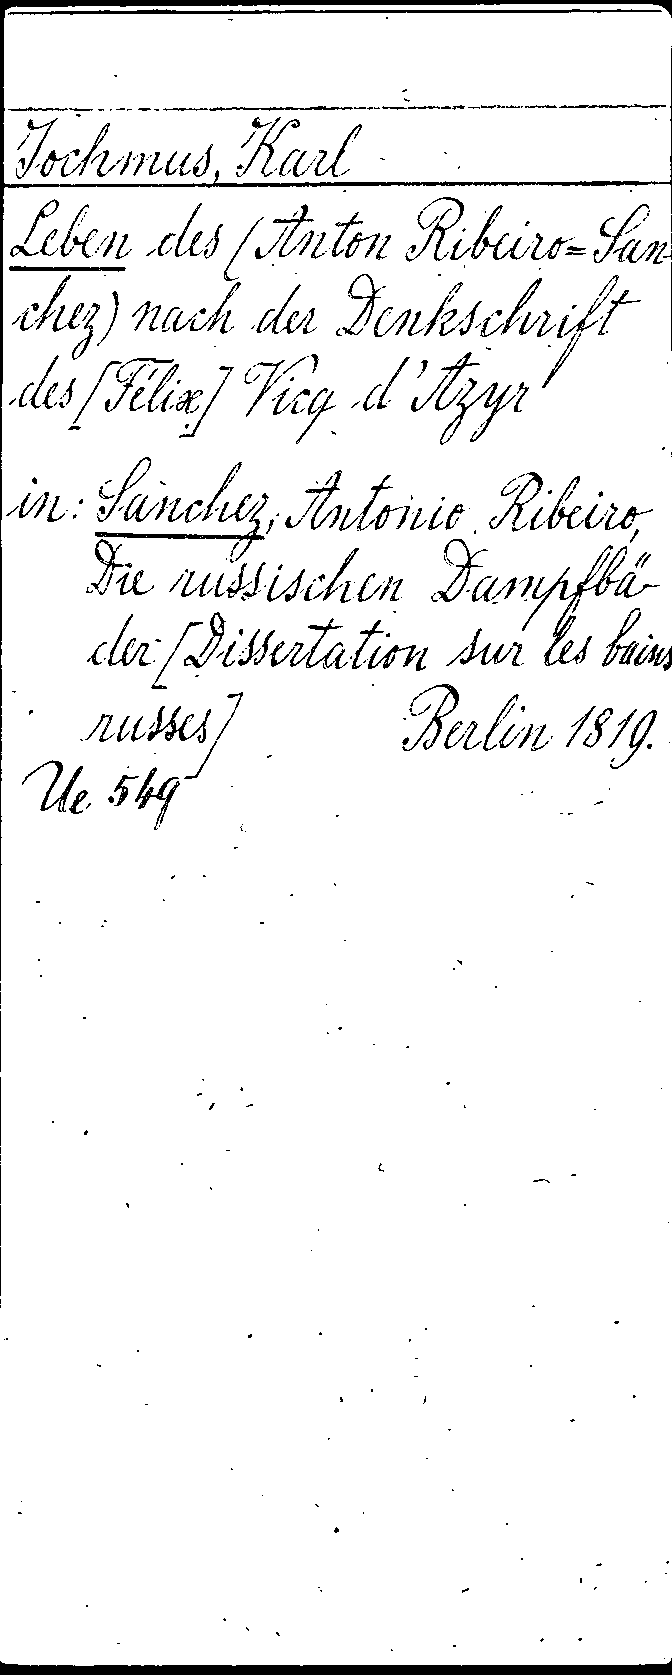 Jochmus, Karl
Leben des (Anton Ribeiro=San
chez) nach der Denkschrift
des [Félix] Vicq d'Azyr
in: Sanchez, Antonio Ribeiro,
Die russischen Dampfbä-
der [Dissertation sur les bains
russes] Berlin 1819.
Ue 549